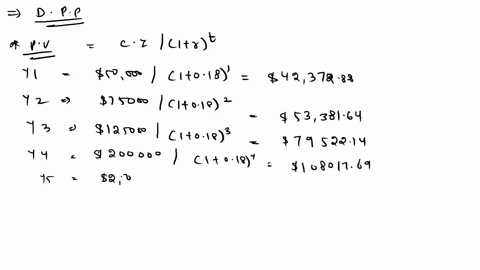 ⇒ D.P.P
* P.V = C.F / (1+r)^t
Y1 = $50,000 / (1+0.18)^1 = $42,372.88
Y2 ⇒ $75000 / (1+0.18)^2 = $53,381.64
Y3 ⇒ $125000 / (1+0.18)^3 = $79522.14
Y4 = $200000 / (1+0.18)^4 = $108017.69
Y5 = $2,0